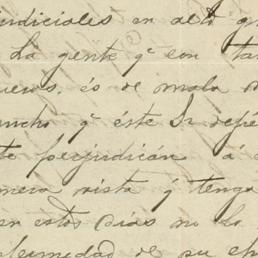 judiciales en alto g
La gente q. con ta
és de mala
q. éste Sr. defie
perjudican á
mera vista y tenga
en estos dias no lo
fermedad de su